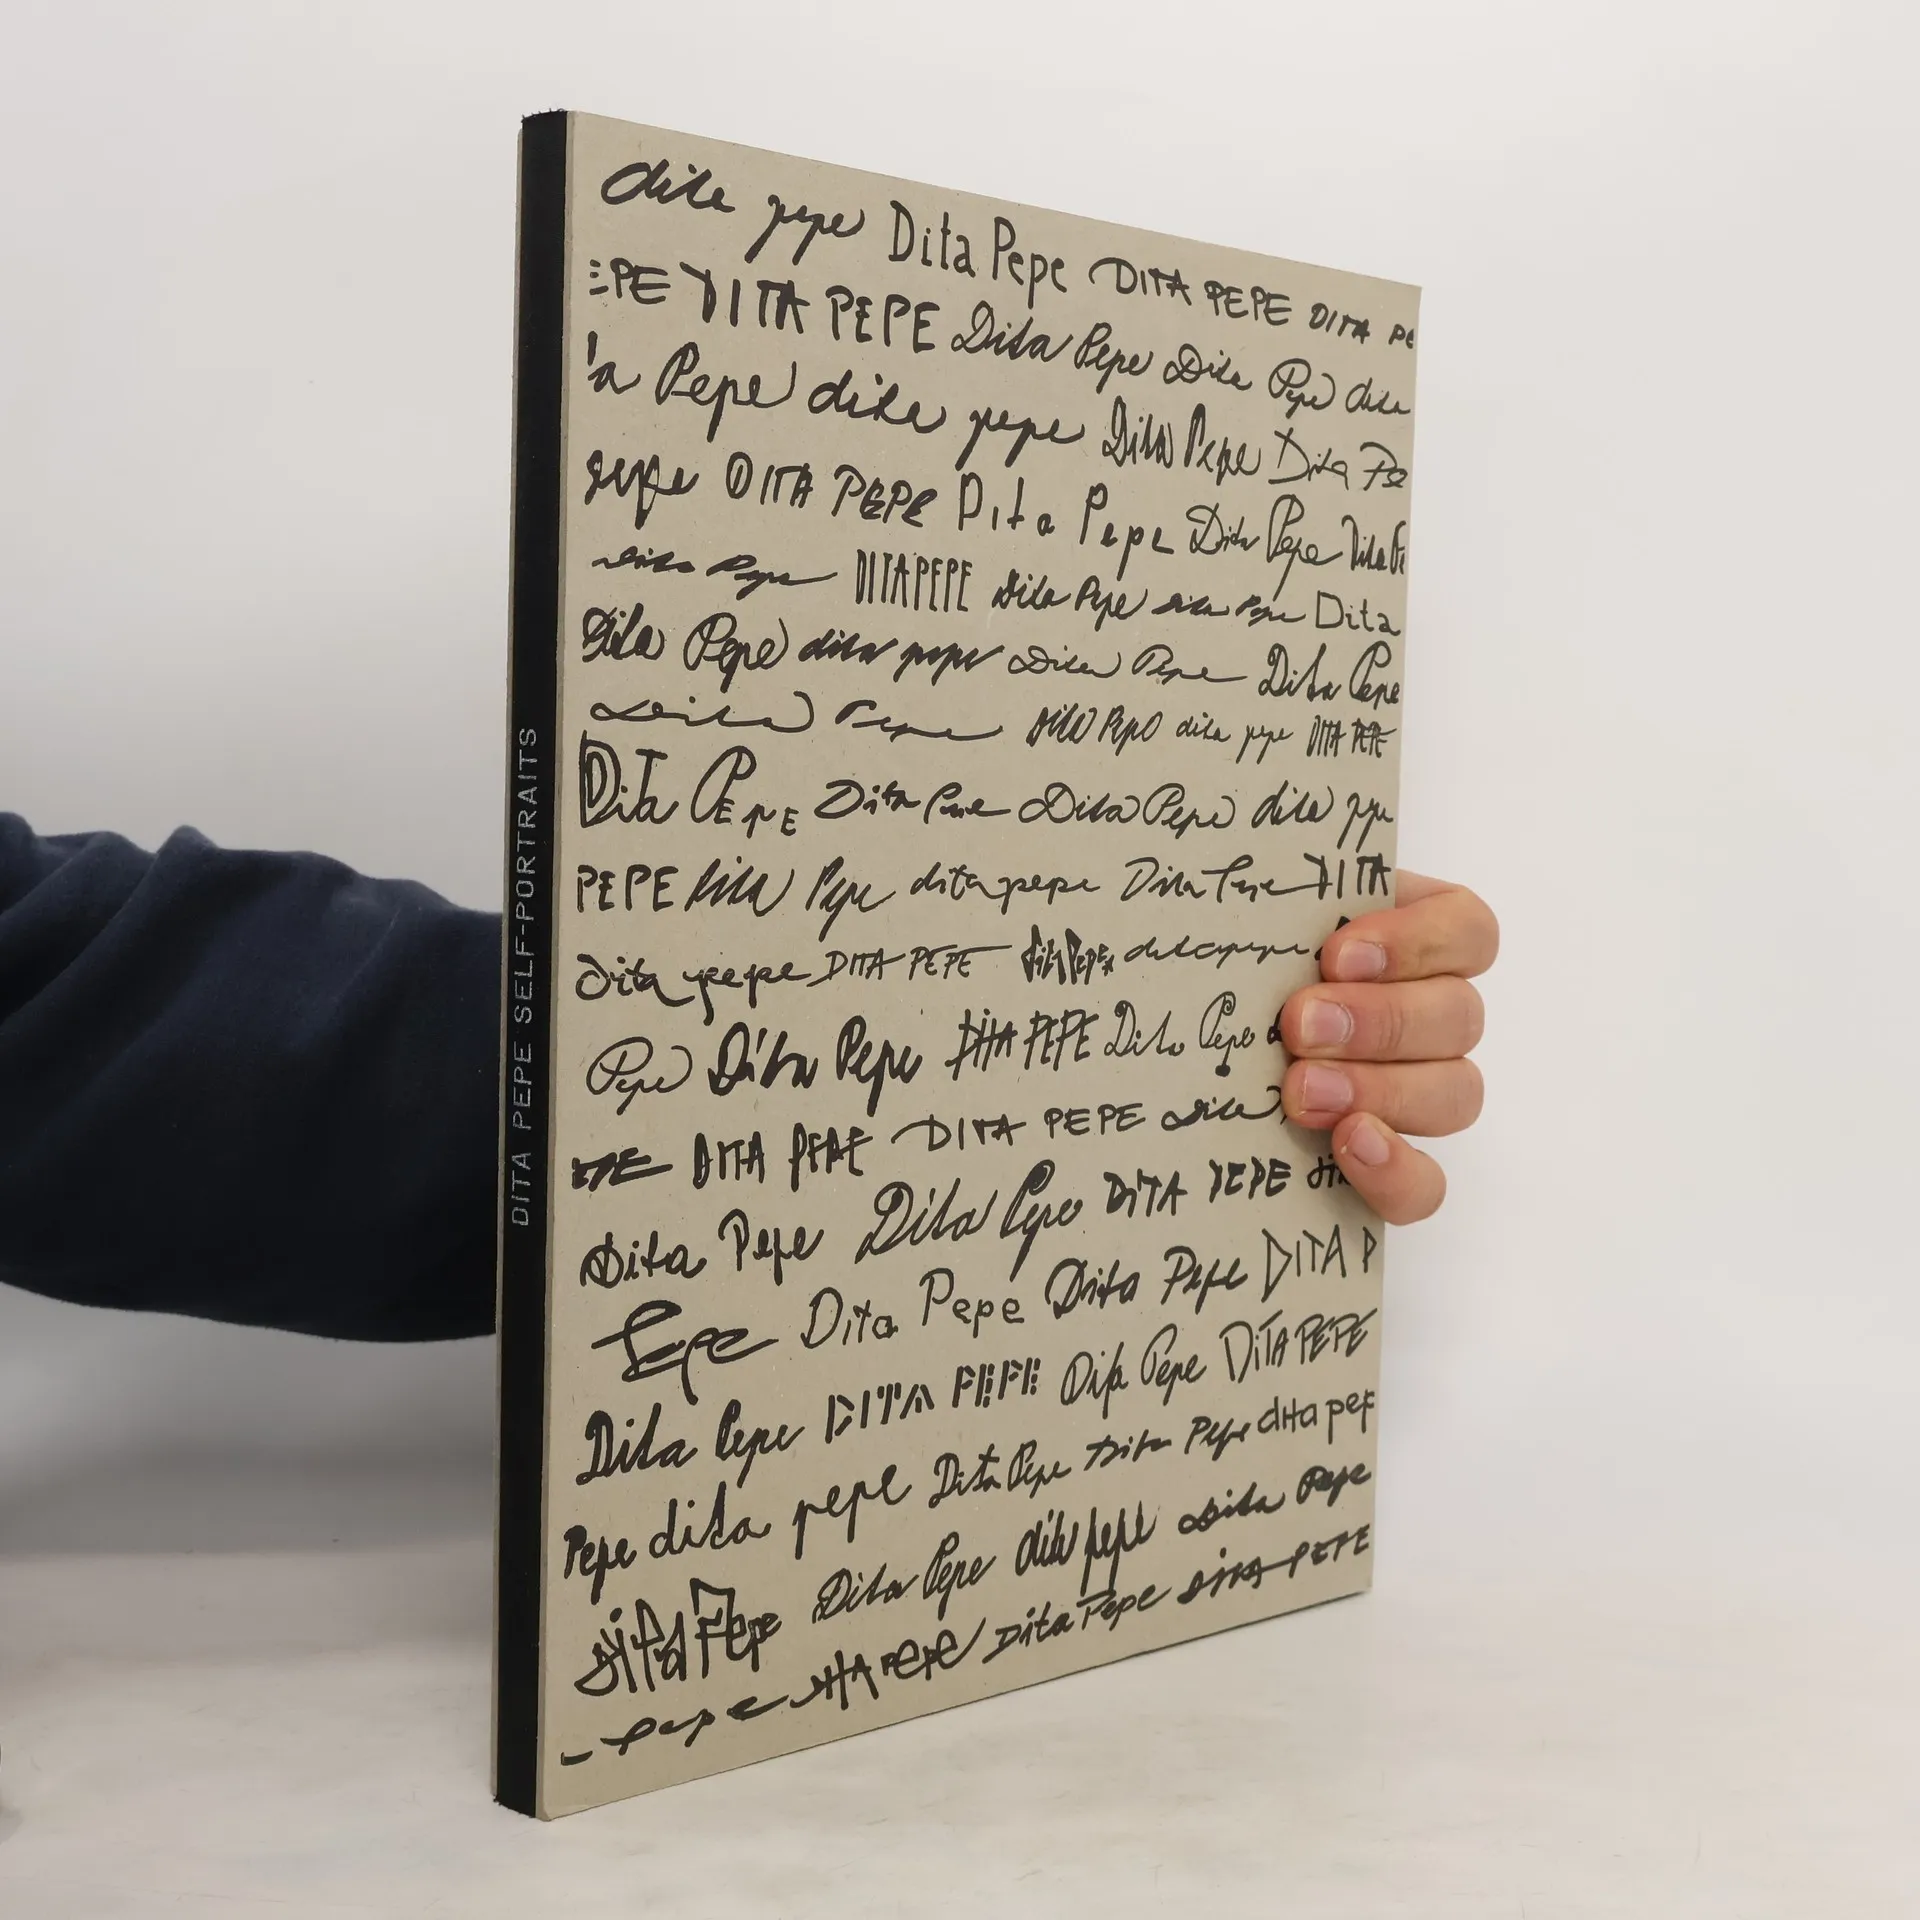 DITA PEPE SELF-PORTRAITS
dita pepe Dita Pepe DITA PEPE DITA PE
EPE DITA PEPE Dita Pepe Dita Pepe dita
a Pepe dita pepe Dita Pepe Dita Pe
pepe DITA PEPE Dita Pepe Dita Pepe Dita Pe
Dita Pepe DITA PEPE Dita Pepe dita Pepe Dita
Dita Pepe dita pepe Dita Pepe Dita Pepe
Dita Pepe Dita Pepe dita pepe DITA PEPE
DiTa PEpE Dita Pepe Dita Pepe dita pepe
PEPE Dita Pepe dita pepe Dita Pepe DITA
dita pepe DITA PEPE Dita Pepe dita pepe
Pepe Dita Pepe DITA PEPE Dita Pepe
DITA PEPE DITA PEPE Dita
Dita Pepe Dita Pepe DITA PEPE dit
Pepe Dita Pepe Dita Pepe DITA P
Dita Pepe DITA PEPE Dita Pepe DiTA PEPE
Pepe dita pepe Dita Pepe Dita Pepe dita pep
dita Pepe Dita Pepe dita pepe Dita Pepe
pepe DITA PEPE Dita Pepe DITA PEPE